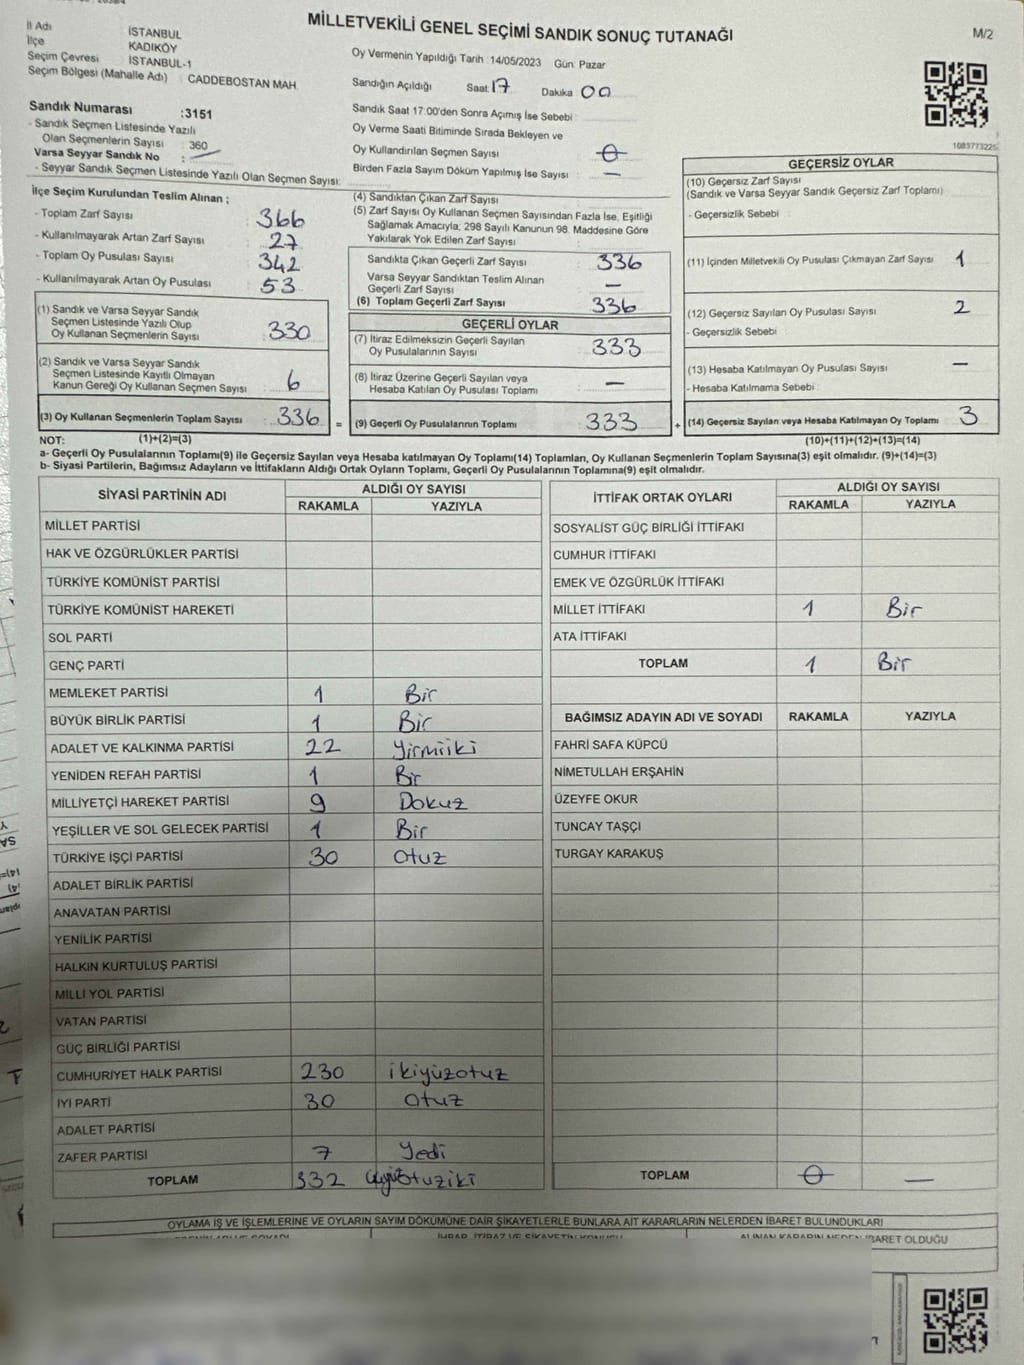 MİLLETVEKİLİ GENEL SEÇİMİ SANDIK SONUÇ TUTANAĞI
M/2
İl Adı İSTANBUL
İlçe KADIKÖY
Seçim Çevresi İSTANBUL-1
Seçim Bölgesi (Mahalle Adı) : CADDEBOSTAN MAH.
Sandık Numarası :3151
- Sandık Seçmen Listesinde Yazılı
Olan Seçmenlerin Sayısı : 360
Varsa Seyyar Sandık No :
- Seyyar Sandık Seçmen Listesinde Yazılı Olan Seçmen Sayısı:
Oy Vermenin Yapıldığı Tarih 14/05/2023 Gün: Pazar
Sandığın Açıldığı Saat: 17 Dakika 00
Sandık Saat 17:00'den Sonra Açımış İse Sebebi :
Oy Verme Saati Bitiminde Sırada Bekleyen ve
Oy Kullandırılan Seçmen Sayısı : 0
Birden Fazla Sayım Döküm Yapılmış İse Sayısı : —
1083773225
İlçe Seçim Kurulundan Teslim Alınan ;
- Toplam Zarf Sayısı : 366
- Kullanılmayarak Artan Zarf Sayısı : 27
- Toplam Oy Pusulası Sayısı : 342
- Kullanılmayarak Artan Oy Pusulası : 53
(1) Sandık ve Varsa Seyyar Sandık
Seçmen Listesinde Yazılı Olup
Oy Kullanan Seçmenlerin Sayısı : 330
(2) Sandık ve Varsa Seyyar Sandık
Seçmen Listesinde Kayıtlı Olmayan
Kanun Gereği Oy Kullanan Seçmen Sayısı : 6
(3) Oy Kullanan Seçmenlerin Toplam Sayısı : 336
(1)+(2)=(3)
(4) Sandıktan Çıkan Zarf Sayısı :
(5) Zarf Sayısı Oy Kullanan Seçmen Sayısından Fazla İse, Eşitliği
Sağlamak Amacıyla, 298 Sayılı Kanunun 98. Maddesine Göre
Yakılarak Yok Edilen Zarf Sayısı :
Sandıkta Çıkan Geçerli Zarf Sayısı : 336
Varsa Seyyar Sandıktan Teslim Alınan
Geçerli Zarf Sayısı : —
(6) Toplam Geçerli Zarf Sayısı : 336
GEÇERLİ OYLAR
(7) İtiraz Edilmeksizin Geçerli Sayılan
Oy Pusulalarının Sayısı : 333
(8) İtiraz Üzerine Geçerli Sayılan veya
Hesaba Katılan Oy Pusulası Toplamı : —
= (9) Geçerli Oy Pusulalarının Toplamı : 333
GEÇERSİZ OYLAR
(10) Geçersiz Zarf Sayısı
(Sandık ve Varsa Seyyar Sandık Geçersiz Zarf Toplamı)
- Geçersizlik Sebebi :
(11) İçinden Milletvekili Oy Pusulası Çıkmayan Zarf Sayısı : 1
(12) Geçersiz Sayılan Oy Pusulası Sayısı : 2
- Geçersizlik Sebebi :
(13) Hesaba Katılmayan Oy Pusulası Sayısı : —
- Hesaba Katılmama Sebebi :
+ (14) Geçersiz Sayılan veya Hesaba Katılmayan Oy Toplamı : 3
(10)+(11)+(12)+(13)=(14)
NOT:
a- Geçerli Oy Pusulalarının Toplamı(9) ile Geçersiz Sayılan veya Hesaba katılmayan Oy Toplamı(14) Toplamları, Oy Kullanan Seçmenlerin Toplam Sayısına(3) eşit olmalıdır. (9)+(14)=(3)
b- Siyasi Partilerin, Bağımsız Adayların ve İttifakların Aldığı Ortak Oyların Toplamı, Geçerli Oy Pusulalarının Toplamına(9) eşit olmalıdır.
SİYASİ PARTİNİN ADI
ALDIĞI OY SAYISI
RAKAMLA YAZIYLA
MİLLET PARTİSİ
HAK VE ÖZGÜRLÜKLER PARTİSİ
TÜRKİYE KOMÜNİST PARTİSİ
TÜRKİYE KOMÜNİST HAREKETİ
SOL PARTİ
GENÇ PARTİ
MEMLEKET PARTİSİ 1 Bir
BÜYÜK BİRLİK PARTİSİ 1 Bir
ADALET VE KALKINMA PARTİSİ 22 Yirmiiki
YENİDEN REFAH PARTİSİ 1 Bir
MİLLİYETÇİ HAREKET PARTİSİ 9 Dokuz
YEŞİLLER VE SOL GELECEK PARTİSİ 1 Bir
TÜRKİYE İŞÇİ PARTİSİ 30 Otuz
ADALET BİRLİK PARTİSİ
ANAVATAN PARTİSİ
YENİLİK PARTİSİ
HALKIN KURTULUŞ PARTİSİ
MİLLİ YOL PARTİSİ
VATAN PARTİSİ
GÜÇ BİRLİĞİ PARTİSİ
CUMHURİYET HALK PARTİSİ 230 ikiyüzotuz
İYİ PARTİ 30 otuz
ADALET PARTİSİ
ZAFER PARTİSİ 7 Yedi
TOPLAM 332
İTTİFAK ORTAK OYLARI
ALDIĞI OY SAYISI
RAKAMLA YAZIYLA
SOSYALİST GÜÇ BİRLİĞİ İTTİFAKI
CUMHUR İTTİFAKI
EMEK VE ÖZGÜRLÜK İTTİFAKI
MİLLET İTTİFAKI 1 Bir
ATA İTTİFAKI
TOPLAM 1 Bir
BAĞIMSIZ ADAYIN ADI VE SOYADI RAKAMLA YAZIYLA
FAHRİ SAFA KÜPCÜ
NİMETULLAH ERŞAHİN
ÜZEYFE OKUR
TUNCAY TAŞÇI
TURGAY KARAKUŞ
TOPLAM 0 —
OYLAMA İŞ VE İŞLEMLERİNE VE OYLARIN SAYIM DÖKÜMÜNE DAİR ŞİKAYETLERLE BUNLARA AİT KARARLARIN NELERDEN İBARET BULUNDUKLARI
İHBAR, İTİRAZ VE ŞİKAYETİN KONUSU
ALINAN KARARIN NEDEN İBARET OLDUĞU